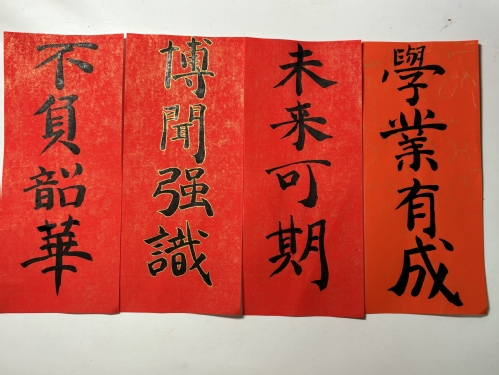 學業有成
未来可期
博聞强識
不負韶華